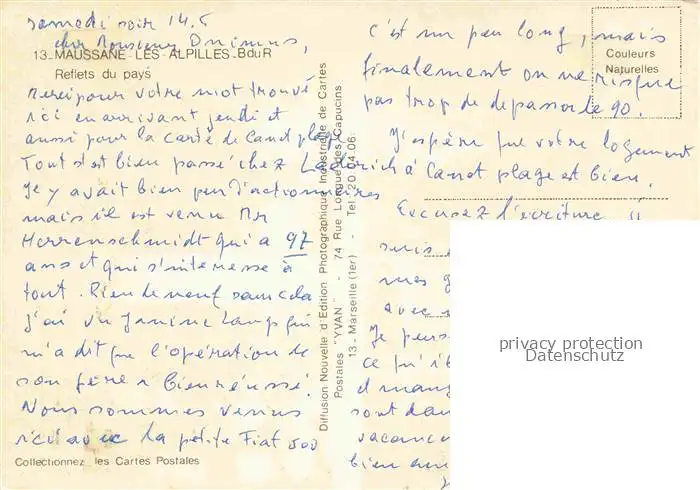 samedi soir 14.5
cher Monsieur
13_MAUSSANE-LES-ALPILLES_BduR
Reflets du pays
Merci pour votre mot trouvé
ici en arrivant jeudi et
aussi pour la carte de Canet plage
Tout s'est bien passé chez
il y avait bien peu d'actionnaires
mais il est venu Mr
Herrenschmidt qui a 97
ans et qui s'intéresse à
tout. Rien de neuf sans cela
j'ai vu Janine qui
m'a dit que l'opération de
son père a bien réussi.
Nous sommes venus
ici avec la petite Fiat 500
Collectionnez les Cartes Postales
Diffusion Nouvelle d'Edition Photographique Industrielle de Cartes
Postales "YVAN" - 74 Rue Longue des Capucins
13 - Marseille (1er) - Tel : 20.04.06
c'est un peu long, mais
finalement on ne risque
pas trop de dépasser le 90.
J'espère que votre logement
à Canet plage est bien.
Excusez l'écriture
suis
mes
avec
Je
ce qu'il
et
sont dans
vacances
bien
Couleurs
Naturelles
privacy protection
Datenschutz